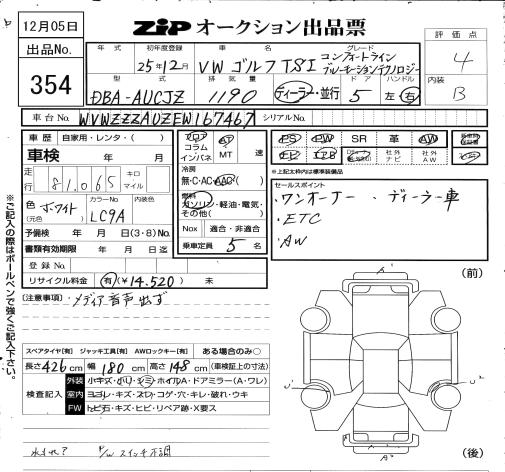 12月05日
ZiP オークション出品票
出品No.
354
年式 初年度登録 車名 グレード
25年12月 VW ゴルフTSI コンフォートライン
ブルーモーションテクノロジー
型式 排気量 ドア ハンドル
DBA-AUCJZ 1190 ディーラー・並行 5 左 右
評価点
4
内装
B
車台No. WVWZZZAUZEW167467 シリアルNo.
車歴 自家用・レンタ( )
車検 年 月
走行 81,065 キロ マイル
色 ホワイト カラーNo 内装色
(元色) LC9A
予備検 年 月 日(3・8)No.
書類有効期限 年 月 日迄
登録No.
リサイクル料金 有(¥14,520) 未
フロア コラム インパネ AT MT 速
冷房
無・C・AC・AAC
燃料
ガソリン・軽油・電気・その他( )
Nox 適合・非適合
乗車定員 5 名
PS PW SR 革 AW
社外ナビ 社外AW
※上記太枠内は標準装備品
セールスポイント
・ワンオーナー ・ディーラー車
・ETC
・AW
(注意事項)
・メディア音声出ず
スペアタイヤ[有] ジャッキ工具[有] AWロックキー[有] ある場合のみ〇
長さ 426 cm 幅 180 cm 高さ 148 cm (車検証上の寸法)
検査記入
外装 小キズ・ホイルA・ドアミラー(A・ワレ)
室内 ヨゴレ・キズ・スレ・コゲ・穴・キレ・破れ・ウキ
FW トビ石・キズ・ヒビ・リペア跡・X要ス
P/W スイッチ不調
※ご記入の際はボールペンで強くご記入下さい。
(前)
A'
U' U²
A²
(後)